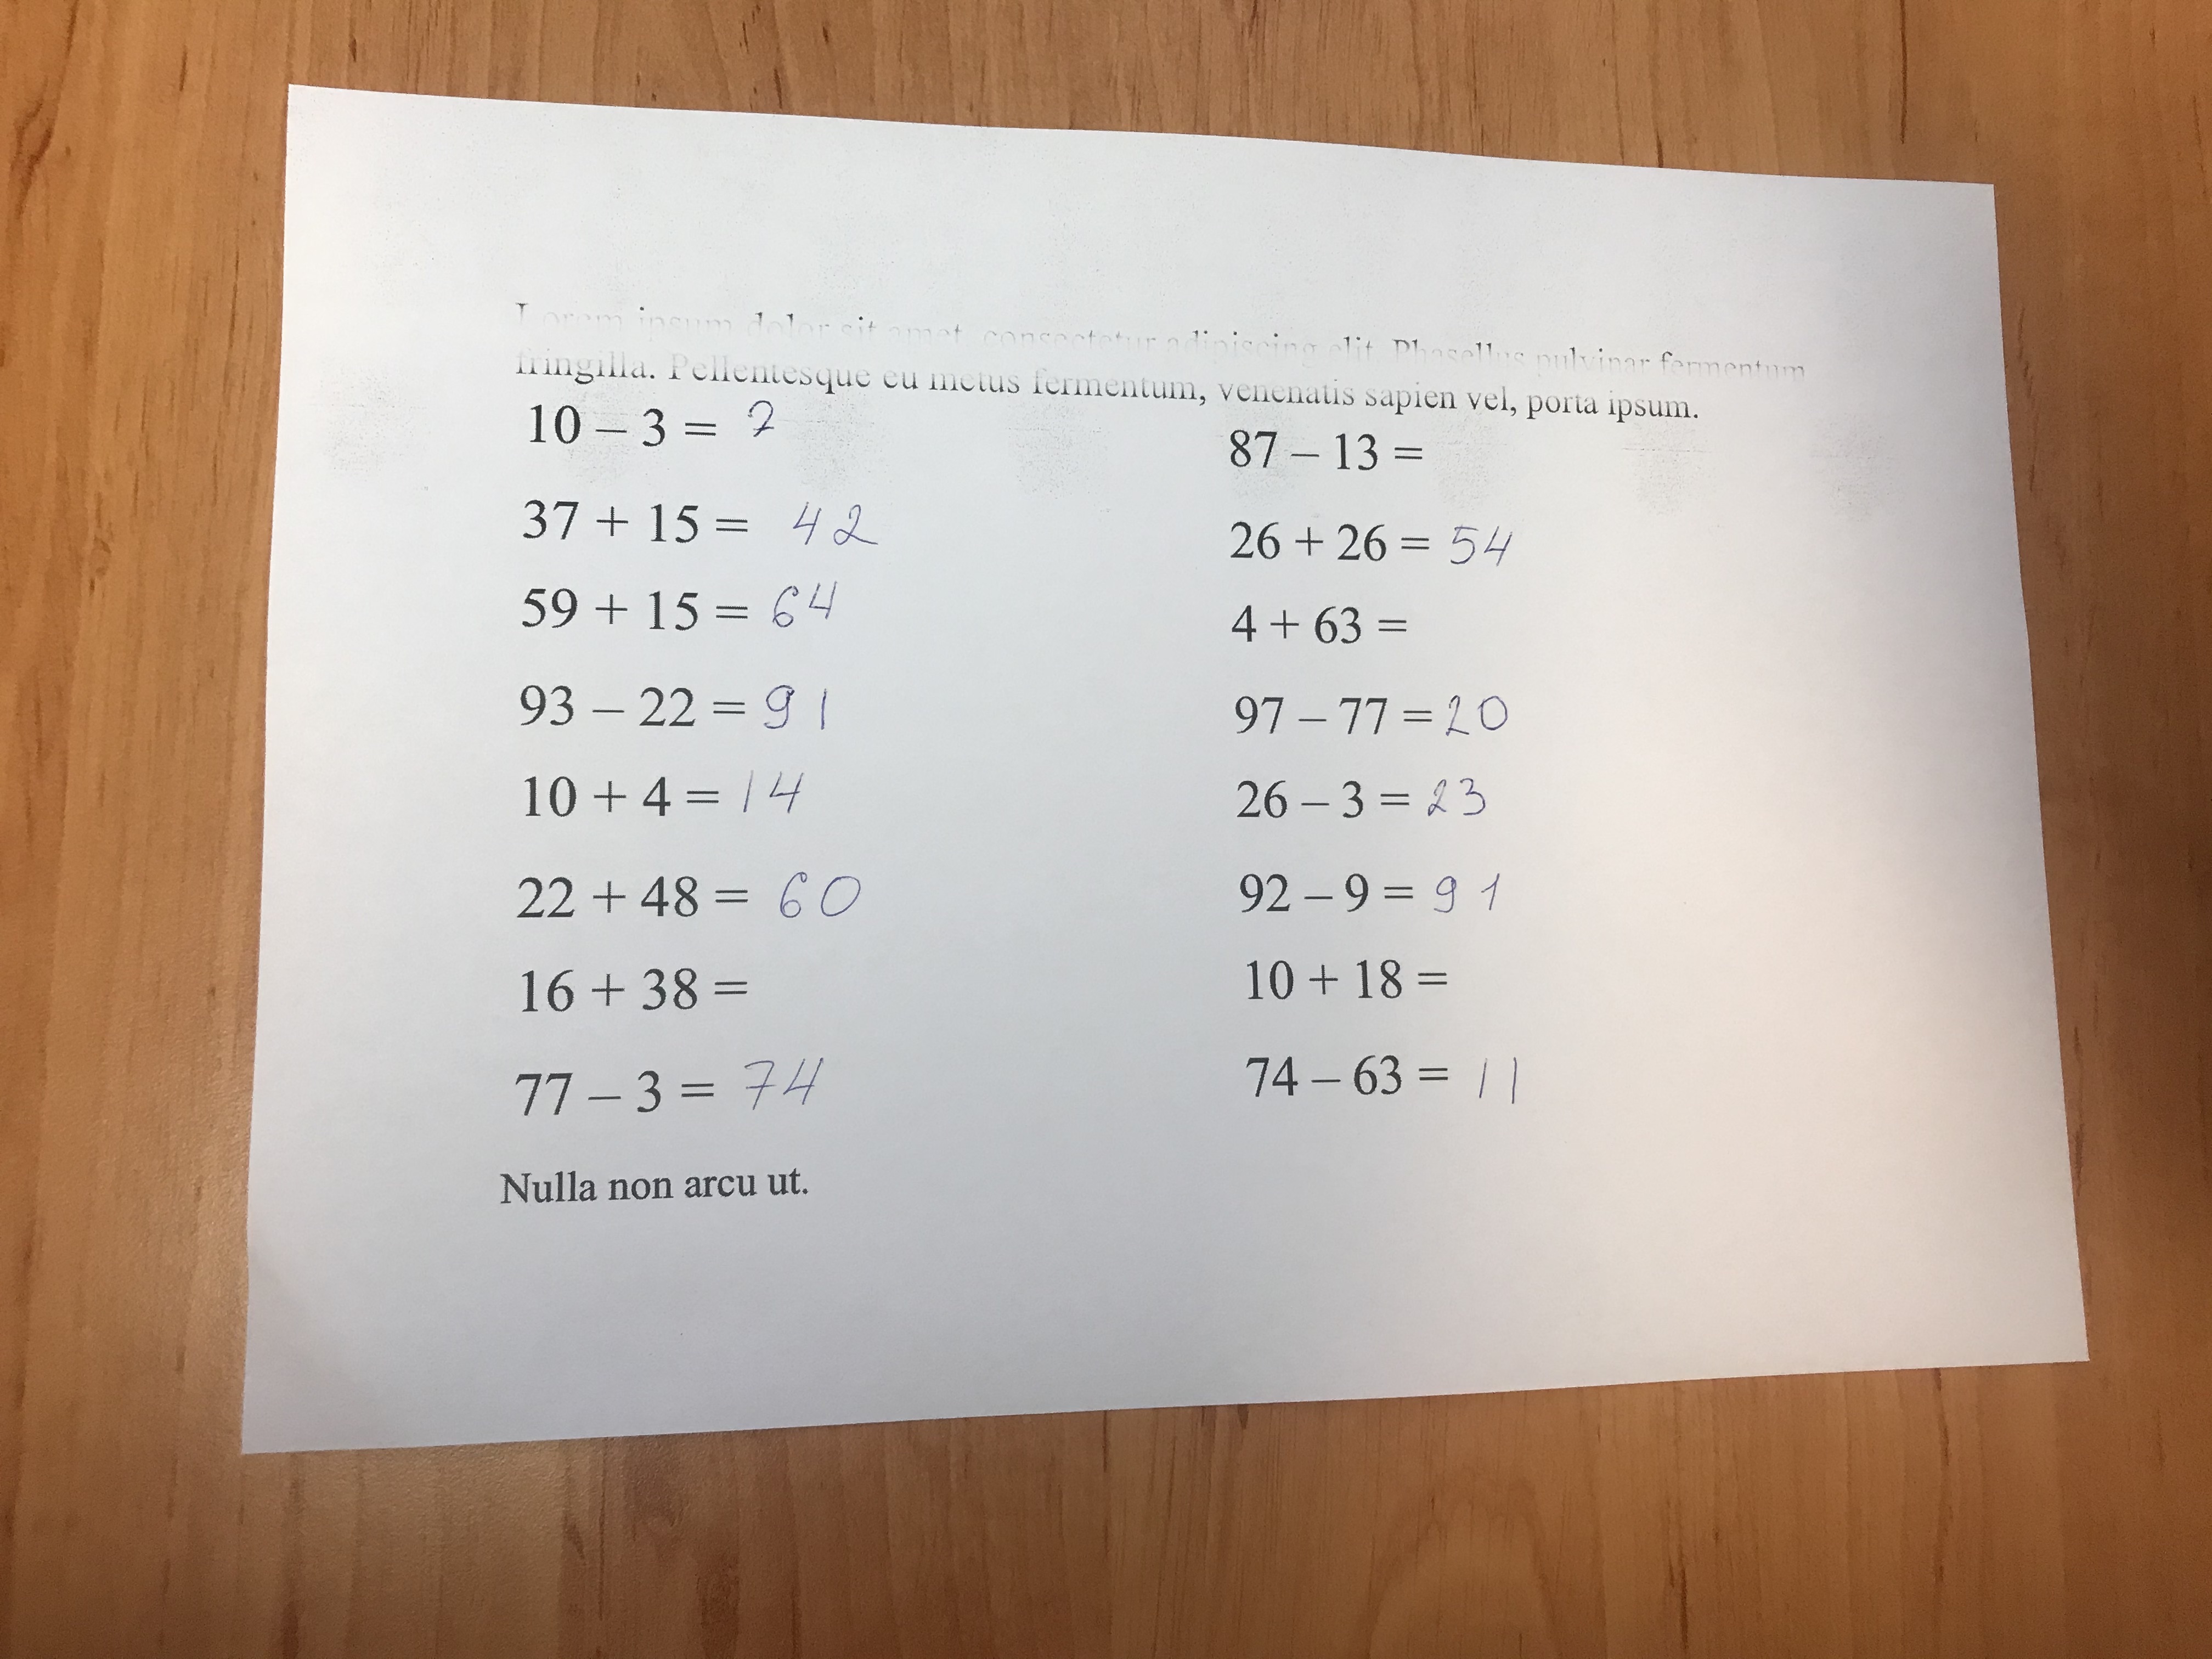 Lorem ipsum dolor sit amet, consectetur adipiscing elit. Phasellus pulvinar fermentum
fringilla. Pellentesque eu metus fermentum, venenatis sapien vel, porta ipsum.
10 – 3 = 7
37 + 15 = 42
59 + 15 = 64
93 – 22 = 91
10 + 4 = 14
22 + 48 = 60
16 + 38 =
77 – 3 = 74
87 – 13 =
26 + 26 = 54
4 + 63 =
97 – 77 = 20
26 – 3 = 23
92 – 9 = 91
10 + 18 =
74 – 63 = 11
Nulla non arcu ut.